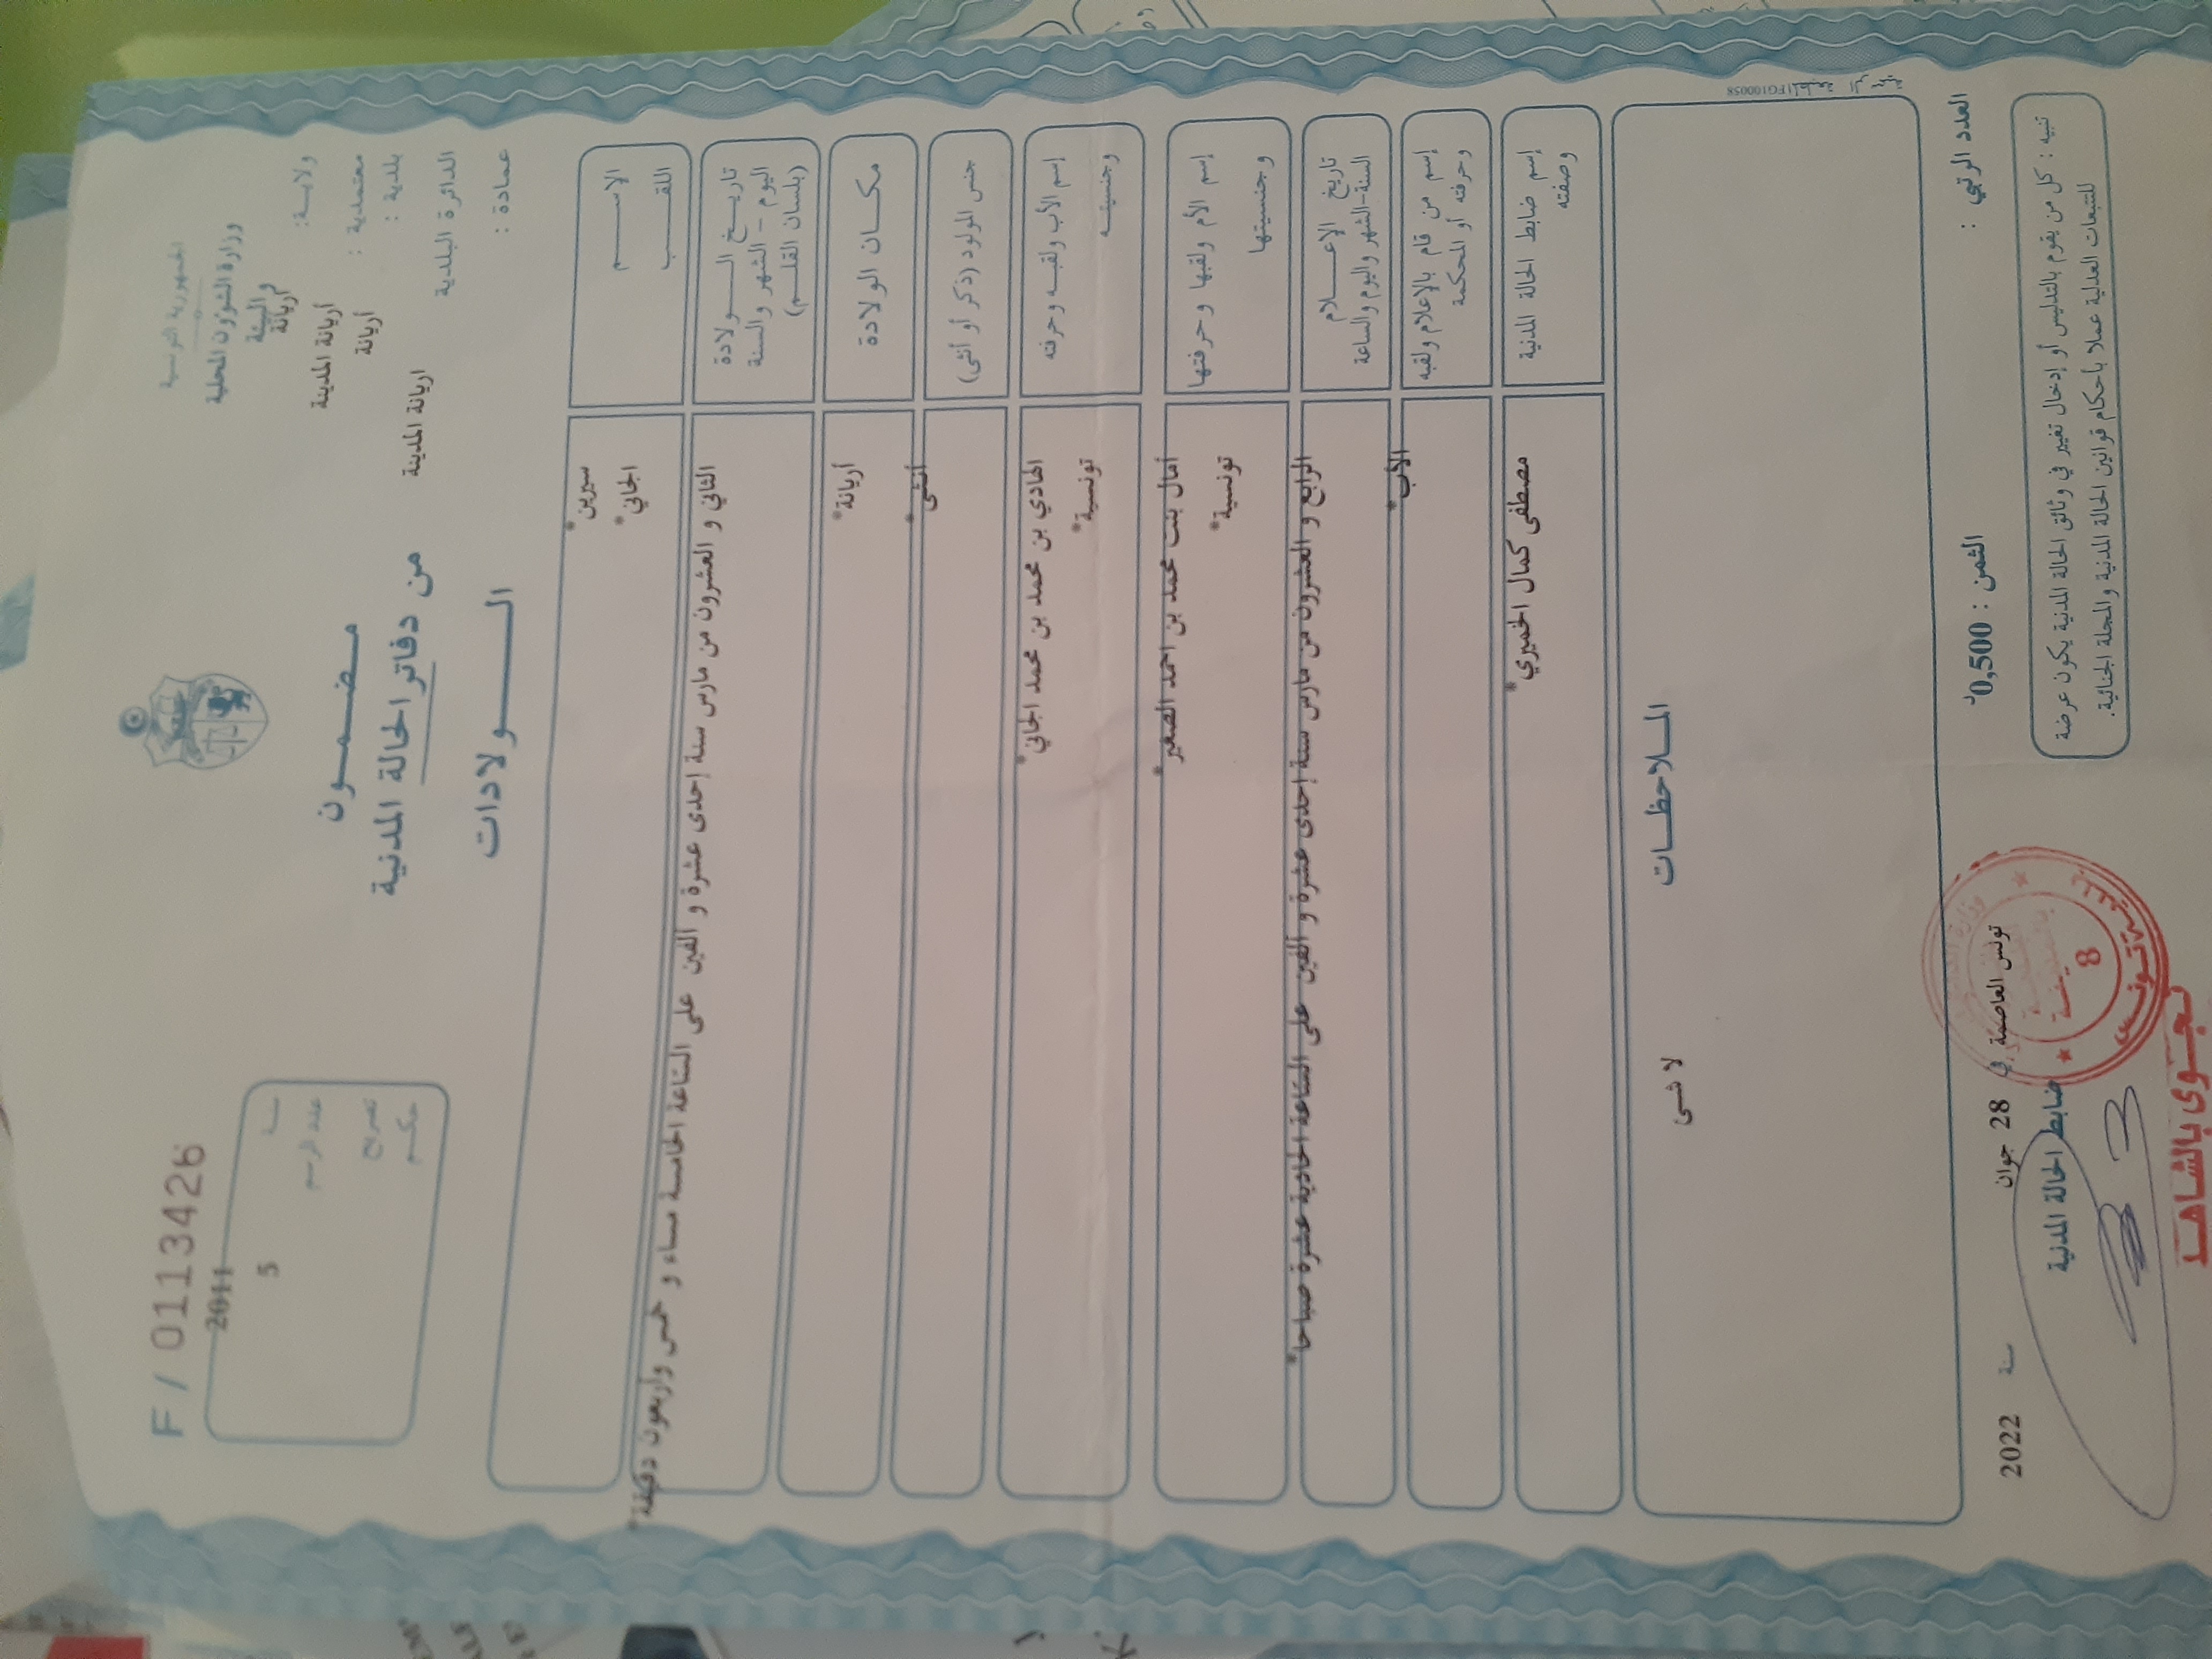 الجمهورية التونسية
وزارة الشؤون المحلية
و البيئة
ولايـــة: أريانة
معتمدية : أريانة المدينة
بلدية : أريانة
الدائرة البلدية اريانة المدينة
عمادة :
F / 01134426
سنــة 2011
عدد الرسم 5
تصريح
حكــم
مـضـمـــون
من دفاتر الحالة المدنية
الـــولادات
الاســـم سيرين*
اللقـــب الجاني*
تاريـــخ الـــولادة
اليوم – الشهر والسنة
(بلسان القلـــم)
الثاني و العشرون من مارس سنة إحدى عشرة و الفين على الساعة الخامسة مساء و خمس وأربعون دقيقة*
مكـــان الولادة أريانة*
جنس المولود (ذكر أو أنثى) أنثى*
إسم الأب ولقبـــه وحرفته الهادي بن محمد بن محمد الجاني*
وجنسيتـــه تونسية*
إسم الأم ولقبها وحرفتها أمال بنت محمد بن احمد الصغير*
وجنسيتها تونسية*
تاريخ الإعـــلام
السنة-الشهر واليوم والساعة
الرابع و العشرون من مارس سنة إحدى عشرة و الفين على الساعة الحادية عشرة صباحا*
إسم من قام بالإعلام ولقبه
وحرفته أو المحكمة
الأب*
إسم ضابط الحالة المدنية
وصفته
مصطفى كمال الخميري*
1FG100058
المـــلاحظـــات
لا شىء
العدد الرتبي :
الثمن : 0,500د
تونس العاصمة في 28 جوان سنة 2022
ضابط الحالة المدنية
8
نجـوى بالشاهـد
تنبيه : كل من يقوم بالتدليس أو إدخال تغيير في وثائق الحالة المدنية يكون عرضة
للتتبعات العدلية عملا بأحكام قوانين الحالة المدنية والمجلة الجنائية.